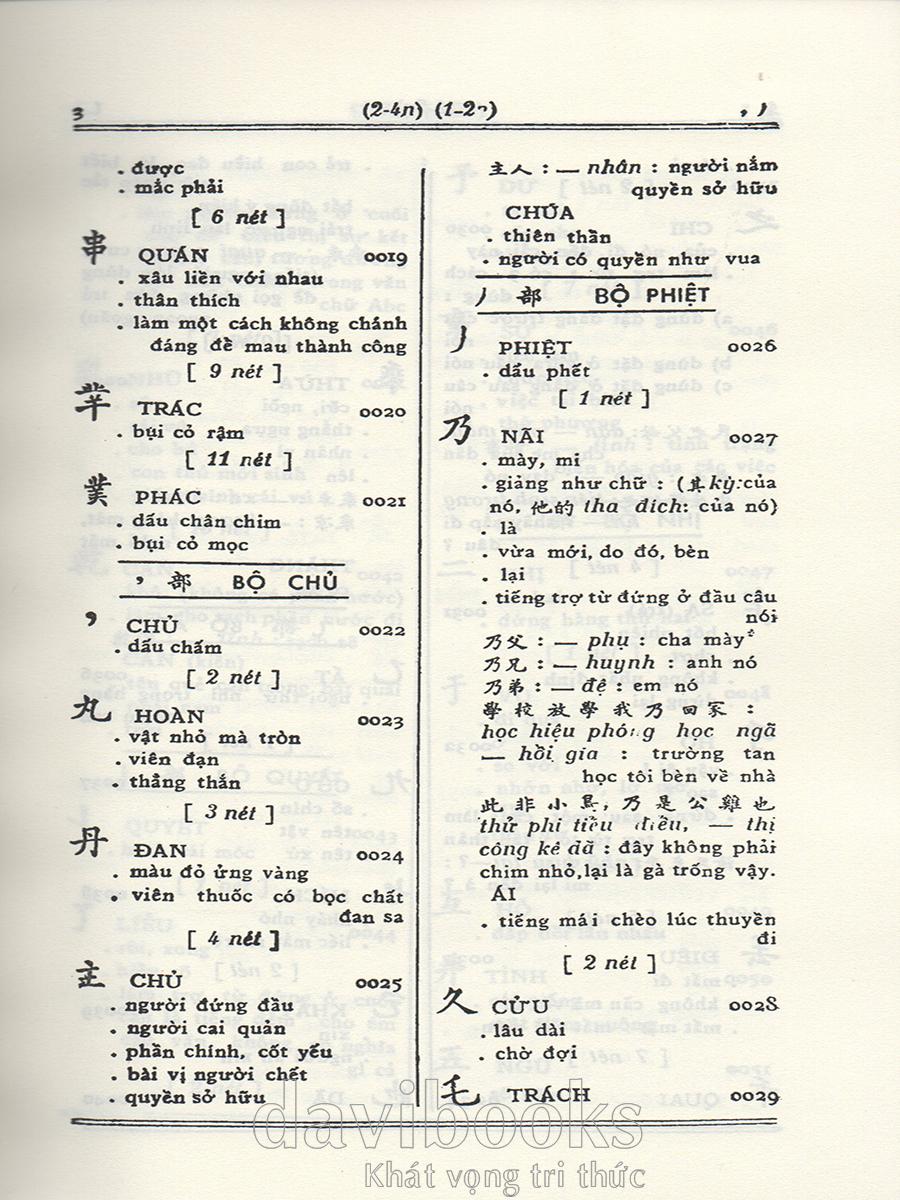 3
(2-4n) (1-2n)
丶丿
. được
. mắc phải
[ 6 nét ]
串 QUÁN 0019
. xâu liền với nhau
. thân thích
. làm một cách không chánh
đáng đề mau thành công
[ 9 nét ]
丵 TRÁC 0020
. bụi cỏ rậm
[ 11 nét ]
PHÁC 0021
. dấu chân chim
. bụi cỏ mọc
丶 部 BỘ CHỦ
丶 CHỦ 0022
. dấu chấm
[ 2 nét ]
丸 HOÀN 0023
. vật nhỏ mà tròn
. viên đạn
. thẳng thắn
[ 3 nét ]
丹 ĐAN 0024
. màu đỏ ửng vàng
. viên thuốc có bọc chất
đan sa
[ 4 nét ]
主 CHỦ 0025
. người đứng đầu
. người cai quản
. phần chính, cốt yếu
. bài vị người chết
. quyền sở hữu
主人 : — nhân : người nắm
quyền sở hữu
CHÚA
. thiên thần
. người có quyền như vua
丿 部 BỘ PHIỆT
丿 PHIỆT 0026
. dấu phết
[ 1 nét ]
乃 NÃI 0027
. mày, mi
. giảng như chữ : (其 kỳ: của
nó, 他的 tha đích: của nó)
. là
. vừa mới, do đó, bèn
. lại
. tiếng trợ từ đứng ở đầu câu
nói
乃父 : — phụ : cha mày
乃兄 : — huynh : anh nó
乃弟 : — đệ : em nó
學 校 放 學 我 乃 回 家 :
học hiệu phóng học ngã
— hồi gia : trường tan
học tôi bèn về nhà
此 非 小 鳥, 乃 是 公 雞 也
thử phi tiều điều, — thị
công kê dã : đây không phải
chim nhỏ, lại là gà trống vậy.
ÁI
. tiếng mái chèo lúc thuyền
đi
[ 2 nét ]
久 CỬU 0028
. lâu dài
. chờ đợi
乇 TRÁCH 0029
davibooks
Khát vọng tri thức